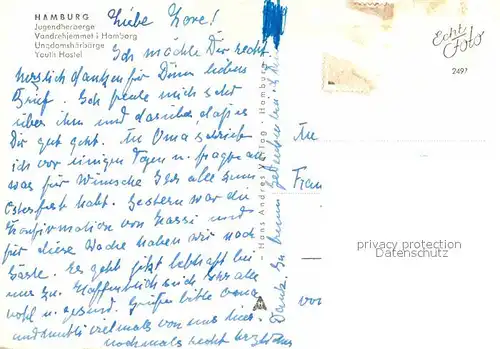 HAMBURG
Jugendherberge
Vandrehjemmet i Hamborg
Ungdomshärbärge
Youth Hostel
Liebe Lore!
Ich möchte Dir recht
herzlich danken für Deinen lieben
Brief. Ich freute mich sehr
über ihn und darüber, daß es
Dir gut geht. An Oma schrieb
ich vor einigen Tagen u. fragte an
was für Wünsche Ihr alle zum
Osterfest habt. Gestern war die
Konfirmation von und
für diese Woche haben wir noch
Gäste. Es geht jetzt lebhaft bei
uns zu. Hoffentlich seid Ihr alle
wohl u. gesund. Grüße bitte Oma
und vielmals von uns hier.
nochmals recht herzlichen
Dank.
- Hans Andres Verlag - Hamburg
Echt
Foto
2497
An
Frau
von
privacy protection
Datenschutz